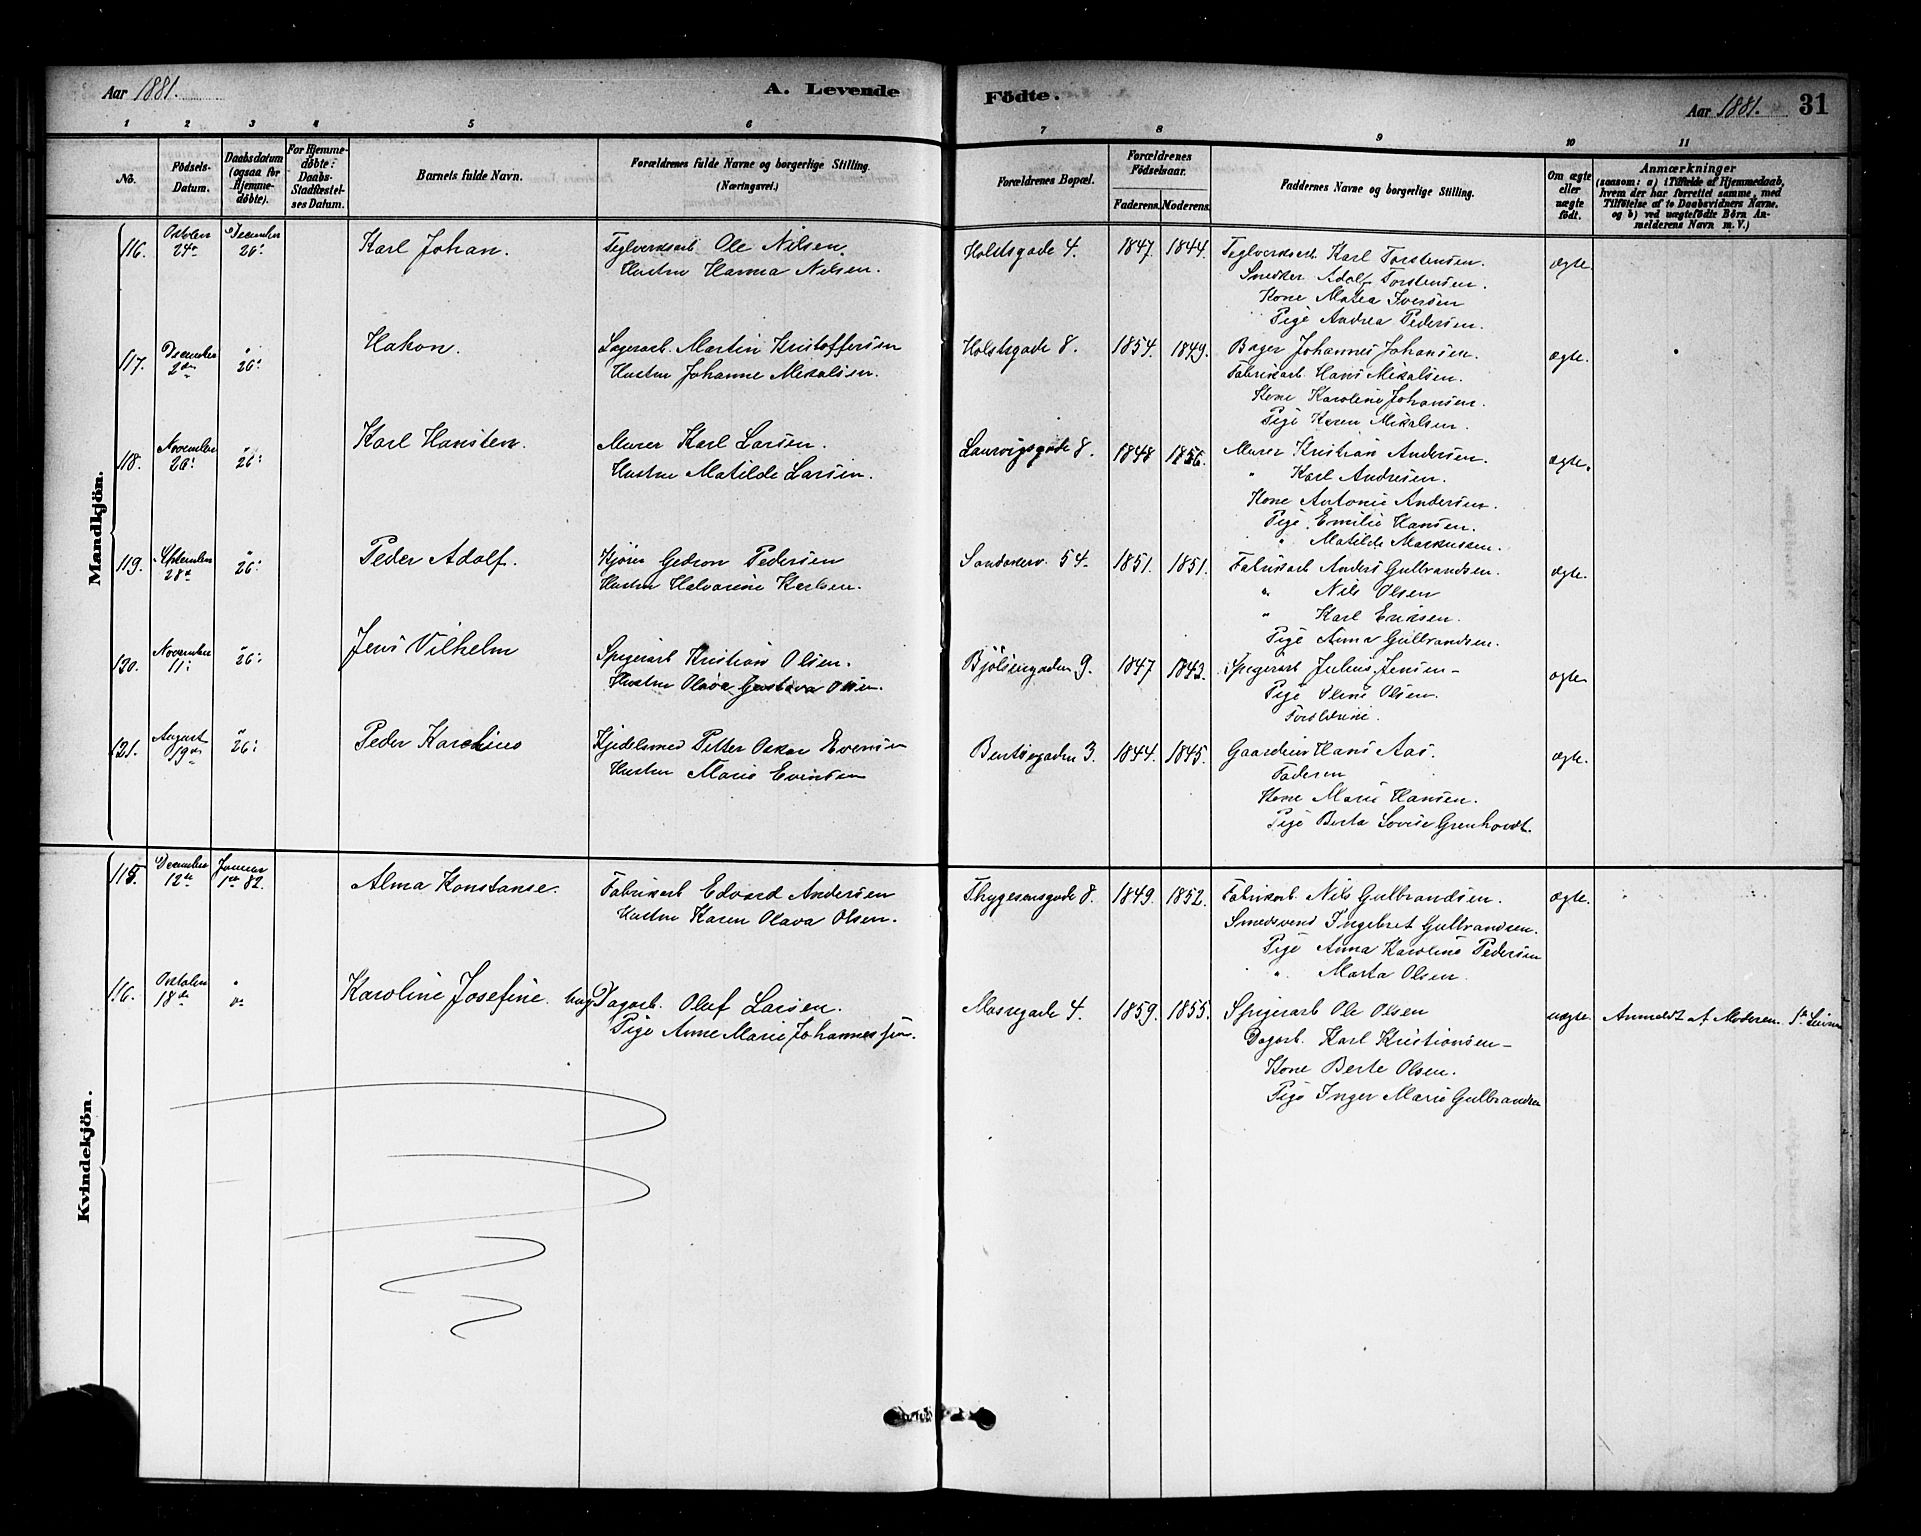 Aar 1881.
A. Levende
Födte.
Aar 1881.
31
1 2 3 4 5 6 7 8 9 10 11
No.
Födsels-Datum.
Daabsdatum (ogsaa for Hjemmedöbte).
For Hjemmedöbte: Daabs-Stadfæstelses Datum.
Barnets fulde Navn.
Forældrenes fulde Navne og borgerlige Stilling. (Næringsvei.)
Forældrenes Bopæl.
Forældrenes Födselsaar.
Faderens. Moderens.
Faddernes Navne og borgerlige Stilling.
Om ægte eller uægte födt.
Anmærkninger
(saasom: a) i Tilfælde af Hjemmedaab, hvem der har forrettet samme, med Tilföielse af to Daabsvidners Navne. og b) ved uægtefödte Börn Anmelderens Navn m. V.)
Mandkjön.
116. October 24de December 26: Karl Johan. Teglverksarb. Ole Nilsen. Holstsgade 4. 1847. 1844. Teglverksarb. Karl Torstensen. ægte.
Hustru Hanna Nilsen. Snedker Adolf Torstensen.
Kone Matea Iversen
Pige Andrea Pedersen.
117. December 2den " 26: Hakon. Lagerarb. Martin Kristoffersen Holstsgade 8. 1854. 1849. Bager Johannes Johansen. ægte.
Hustru Johanne Mikalsen. Fabrikarb. Hans Mikalsen.
Kone Karoline Johansen.
Pige Karen Mikalsen.
118. November 26: " 26: Karl Hansten. Murer Karl Larsen. Laurvigsgade 8. 1848 1856. Murer Kristian Andersen. ægte.
Hustru Matilde Larsen. " Karl Andresen.
Kone Antonie Andersen.
Pige Emilie Hansen.
" Matilde Markussen.
119. September 28de " 26: Peder Adolf. Kjörer Gedion Pedersen Sandakerv. 54. 1851. 1851. Fabrikarb. Anders Gulbrandsen. ægte.
Hustru Halvarine Karlsen. " Nils Olsen
" Karl Eriksen.
Pige Anna Gulbrandsen.
120. November 11: " 26: Jens Vilhelm Spigerarb. Kristian Olsen. Bjölsengaden 9. 1847 1843. Spigerarb Julius Jensen ægte
Hustru Olava Gustava Olsen. Pige Oline Olsen.
Forældrene.
121. August 19de " 26: Peder Karelius Kjedelsmed Petter Oskar Evensen Bentsegaden 3. 1844. 1845. Gaardeier Hans Aas. ægte.
Hustru Marie Evensen Faderen
Kone Marie Hansen.
Pige Berta Lovise Grenhovdt.
Kvindekjön.
115. December 12te Januar 1ste 82. Alma Konstanse. Fabrikarb Edvard Andersen Thygesensgade 8. 1849. 1852. Fabrikarb. Nils Gulbrandsen. ægte.
Hustru Karen Olava Olsen. Smedsvend Ingebret Gulbrandsen.
Pige Anna Karoline Pedersen
" Marta Olsen.
116. October 18de " " Karoline Josefine. Ung. Dagarb. Oluf Larsen. Mosregade 4. 1859. 1855. Spigerarb Ole Olsen uægte. Anmeldt af Moderen.
Pige Anne Marie Johannesen. Dagarb. Karl Kristiansen
Kone Berte Olsen.
Pige Inger Marie Gulbrandsen